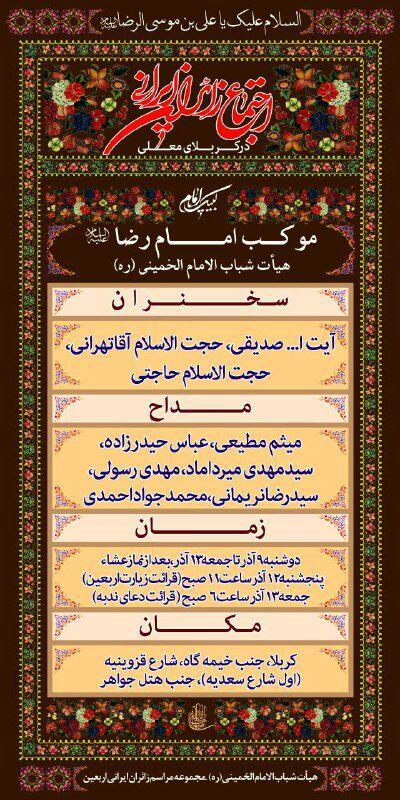 السلام علیک یا علی بن موسی الرضا علیه السلام
اجتماع زائران ایرانی
در کربلای معلی
لبیک یا امام
موکب امام رضا علیه السلام
هیأت شباب الامام الخمینی (ره)
سخنران
آیت ا... صدیقی، حجت الاسلام آقاتهرانی،
حجت الاسلام حاجتی
مداح
میثم مطیعی، عباس حیدرزاده،
سیدمهدی میرداماد، مهدی رسولی،
سیدرضا نریمانی، محمدجواد احمدی
زمان
دوشنبه ۹ آذر تا جمعه ۱۳ آذر، بعد از نماز عشاء
پنجشنبه ۱۲ آذر ساعت ۱۱ صبح (قرائت زیارت اربعین)
جمعه ۱۳ آذر ساعت ۶ صبح (قرائت دعای ندبه)
مکان
کربلا، جنب خیمه گاه، شارع قزوینیه
(اول شارع سعدیه)، جنب هتل جواهر
هیأت شباب الامام الخمینی (ره) . مجموعه مراسم زائران ایرانی اربعین